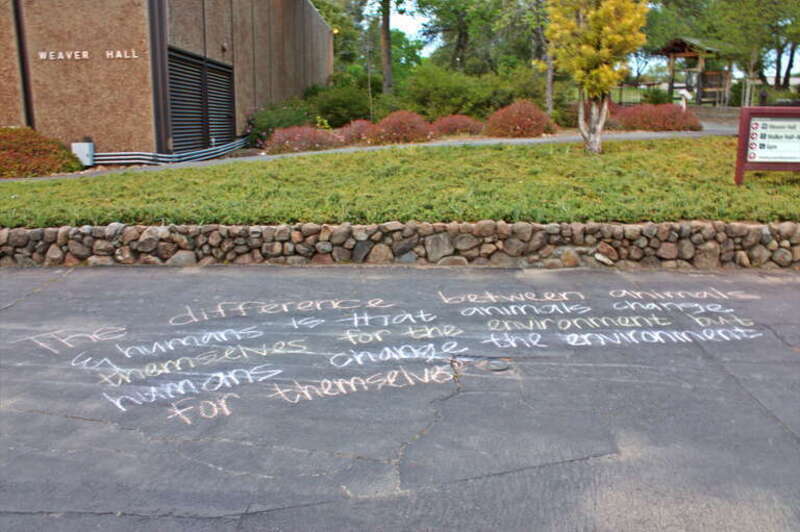 WEAVER HALL
Weaver Hall
Walker Hall
Gym
The difference between animals
& humans is that animals change
themselves for the environment but
humans change the environment
for themselves